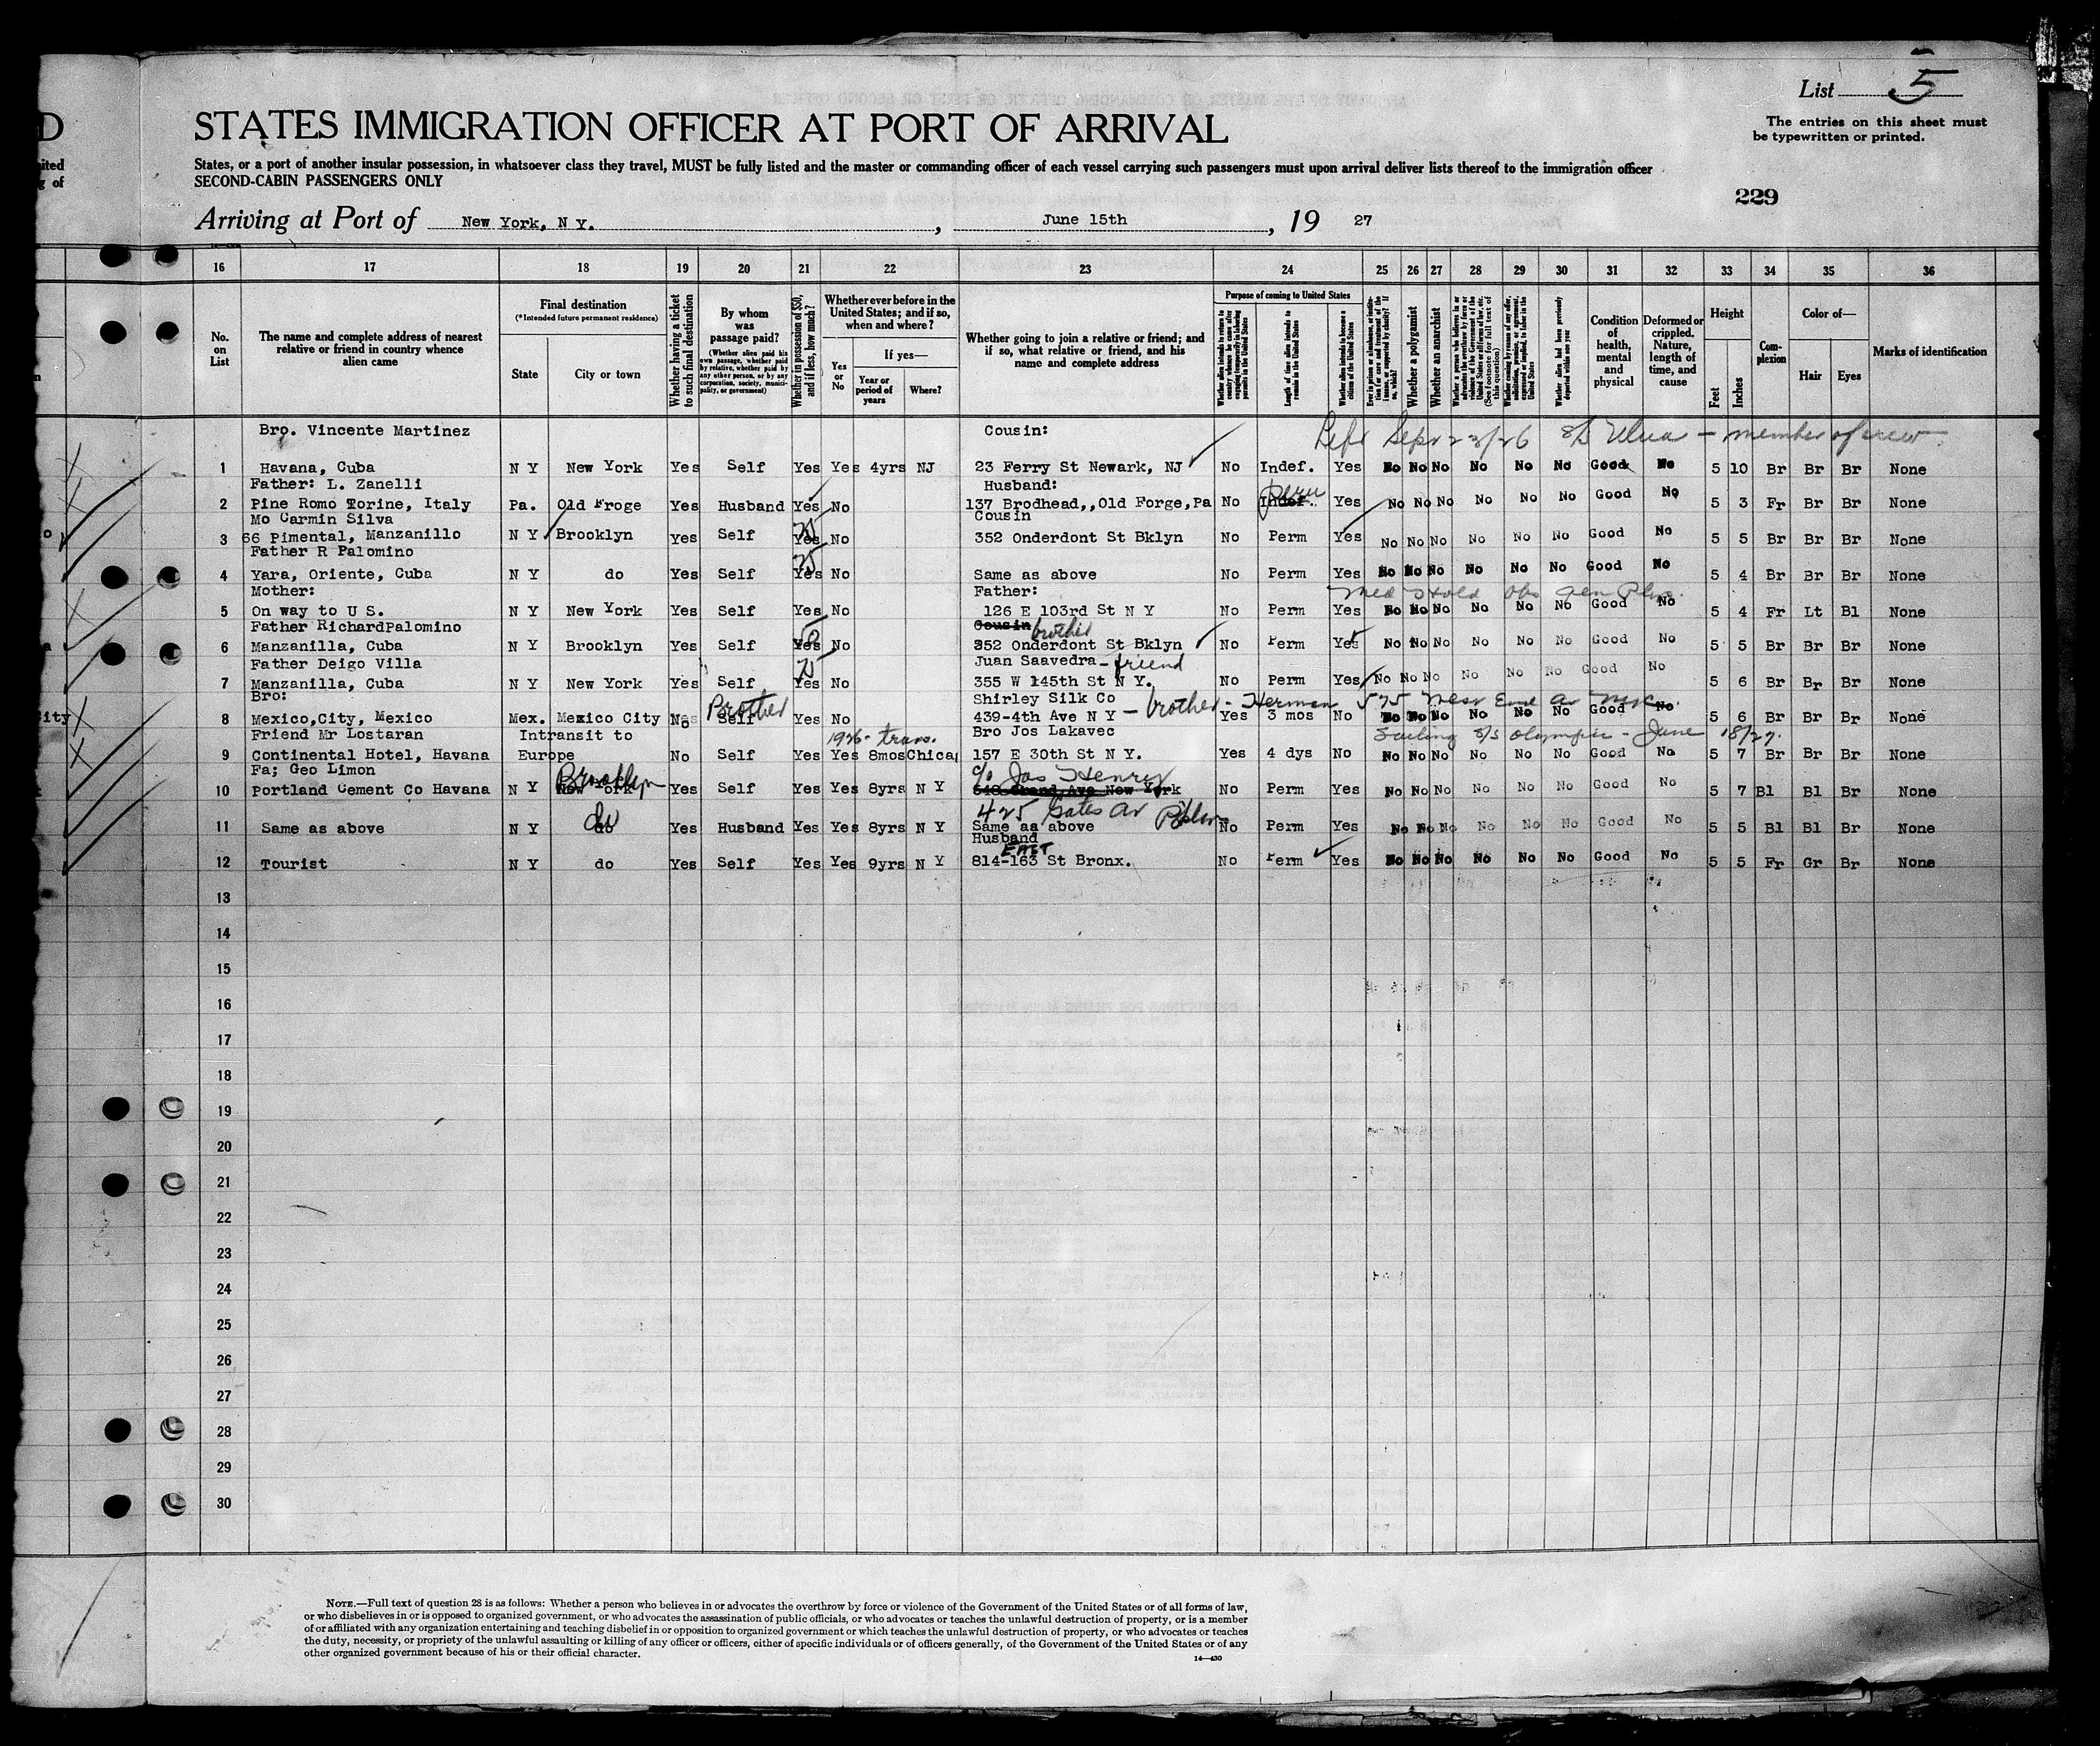 List 5
D
STATES IMMIGRATION OFFICER AT PORT OF ARRIVAL
The entries on this sheet must
be typewritten or printed.
States, or a port of another insular possession, in whatsoever class they travel, MUST be fully listed and the master or commanding officer of each vessel carrying such passengers must upon arrival deliver lists thereof to the immigration officer
SECOND-CABIN PASSENGERS ONLY
229
Arriving at Port of New York, N Y. , June 15th , 19 27
16 17 18 19 20 21 22 23 24 25 26 27 28 29 30 31 32 33 34 35 36
No. on List
The name and complete address of nearest relative or friend in country whence alien came
Final destination
(*Intended future permanent residence)
State
City or town
Whether having a ticket to such final destination
By whom was passage paid?
(Whether alien paid his own passage, whether paid by relative, whether paid by any other person, or by any corporation, society, municipality, or government)
Whether in possession of $50, and if less, how much?
Whether ever before in the United States; and if so, when and where?
Yes or No
If yes—
Year or period of years
Where?
Whether going to join a relative or friend; and if so, what relative or friend, and his name and complete address
Purpose of coming to United States
Length of time alien intends to remain in the United States
Whether alien intends to become a citizen of the United States
Whether a polygamist
Whether an anarchist
Condition of health, mental and physical
Deformed or crippled. Nature, length of time, and cause
Height
Feet
Inches
Complexion
Color of—
Hair
Eyes
Marks of identification
Bro. Vincente Martinez Cousin: Left Sept 23/26 S/S Ulua — member of crew
1 Havana, Cuba N Y New York Yes Self Yes Yes 4yrs NJ 23 Ferry St Newark, NJ No Indef. Yes No No No No No No Good No 5 10 Br Br Br None
Father: L. Zanelli Husband:
2 Pine Romo Torine, Italy Pa. Old Froge Yes Husband Yes No 137 Brodhead,,Old Forge,Pa No Indef. Perm Yes No No No No No No Good No 5 3 Fr Br Br None
Mo Carmin Silva Cousin
3 66 Pimental, Manzanillo N Y Brooklyn Yes Self Yes 75 No 352 Onderdont St Bklyn No Perm Yes No No No No No No Good No 5 5 Br Br Br None
Father R Palomino
4 Yara, Oriente, Cuba N Y do Yes Self Yes 75 No Same as above No Perm Yes No No No No No No Good No 5 4 Br Br Br None
Mother: Father: Med Hold
5 On way to U S. N Y New York Yes Self Yes No 126 E 103rd St N Y No Perm Yes No No No No No No Good No 5 4 Fr Lt Bl None
Father RichardPalomino Cousin brother
6 Manzanilla, Cuba N Y Brooklyn Yes Self Yes 50 No 352 Onderdont St Bklyn No Perm Yes No No No No No No Good No 5 5 Br Br Br None
Father Deigo Villa Juan Saavedra - friend
7 Manzanilla, Cuba N Y New York Yes Self Yes 75 No 355 W 145th St N Y. No Perm Yes No No No No No No Good No 5 6 Br Br Br None
Bro: Brother Shirley Silk Co - brother - Herman 575 West End Av NYC.
8 Mexico,City, Mexico Mex. Mexico City No Self Yes No 439-4th Ave N Y Yes 3 mos No No No No No No No Good No 5 6 Br Br Br None
Friend Mr Lostaran Intransit to 1926 - trans. Bro Jos Lakavec Sailing S/S Olympic - June 18/27.
9 Continental Hotel, Havana Europe No Self Yes Yes 8mos Chica, 157 E 30th St N Y. Yes 4 dys No No No No No No No Good No 5 7 Br Br Br None
Fa; Geo Limon Brooklyn c/o Jas Henry
10 Portland Cement Co Havana N Y New York Yes Self Yes Yes 8yrs N Y 648 Grand Ave New York No Perm Yes No No No No No No Good No 5 7 Bl Bl Br None
do 425 Gates Av Bklyn
11 Same as above N Y do Yes Husband Yes Yes 8yrs N Y Same aa above No Perm Yes No No No No No No Good No 5 5 Bl Bl Br None
Husband
EAST
12 Tourist N Y do Yes Self Yes Yes 9yrs N Y 814-163 St Bronx. No Perm Yes No No No No No No Good No 5 5 Fr Gr Br None
13
14
15
16
17
18
19
20
21
22
23
24
25
26
27
28
29
30
NOTE.—Full text of question 28 is as follows: Whether a person who believes in or advocates the overthrow by force or violence of the Government of the United States or of all forms of law,
or who disbelieves in or is opposed to organized government, or who advocates the assassination of public officials, or who advocates or teaches the unlawful destruction of property, or is a member
of or affiliated with any organization entertaining and teaching disbelief in or opposition to organized government or which teaches the unlawful destruction of property, or who advocates or teaches
the duty, necessity, or propriety of the unlawful assaulting or killing of any officer or officers, either of specific individuals or of officers generally, of the Government of the United States or of any
other organized government because of his or their official character.
14—430